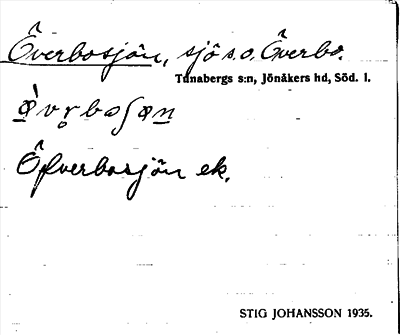 Överbosjön, sjö s.o. Överbo.
Tunabergs s:n, Jönåkers hd, Söd. l.
Öfverbosjön ek.
STIG JOHANSSON 1935.